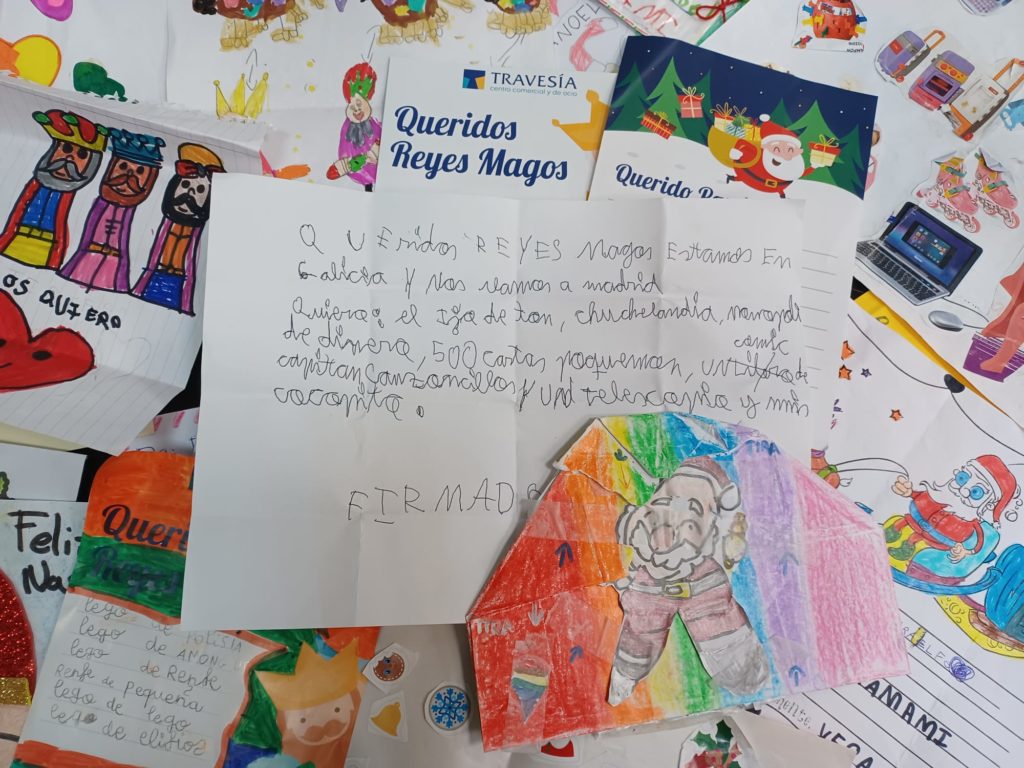 NOEL
TRAVESÍA
centro comercial y de ocio
Queridos
Reyes Magos
Querido
OS QUIERO
QUEridos REYES Magos EstamoS En
Galicsa Y Nos vamos a madrid
Quiero: el Iga de tan, chuchelandia, monopoli
de dinero, 500 cartas poquemon, un libro de
comic
capitan canzoncillos y un telescopio y mis
cacapita.
FIRMADO
TIRA
Feliz
Na
Queri
Reyes
lego de POLISIA
lego de AMON
lego de RENFE
RENFE de pequeña
lego de lego
lego de
AMAMI